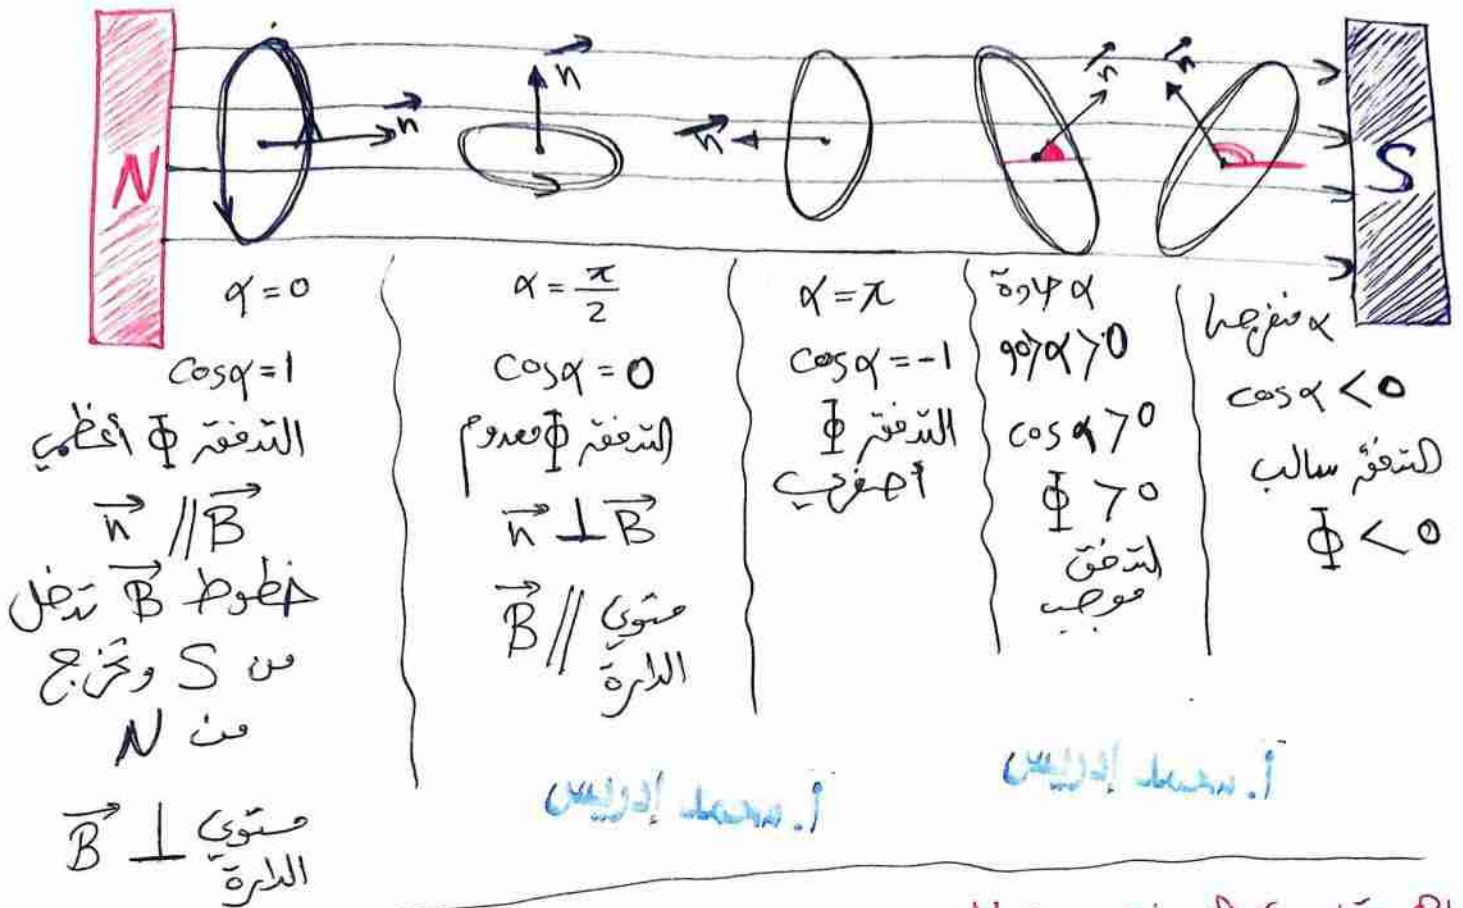 N
S
n
n
n
n
n
α = 0
cosα = 1
التدفق Φ أعظمي
n // B
خطوط B تدخل
من S وتخرج
من N
B ⊥ مستوي
الدارة
α = π/2
cosα = 0
التدفق Φ معدوم
n ⊥ B
B // مستوي
الدارة
α = π
cosα = -1
التدفق Φ
أصغري
α حادة
90>α>0
cosα > 0
Φ > 0
التدفق
موجب
α منفرجة
cosα < 0
التدفق سالب
Φ < 0
أ. محمد إدريس
أ. محمد إدريس